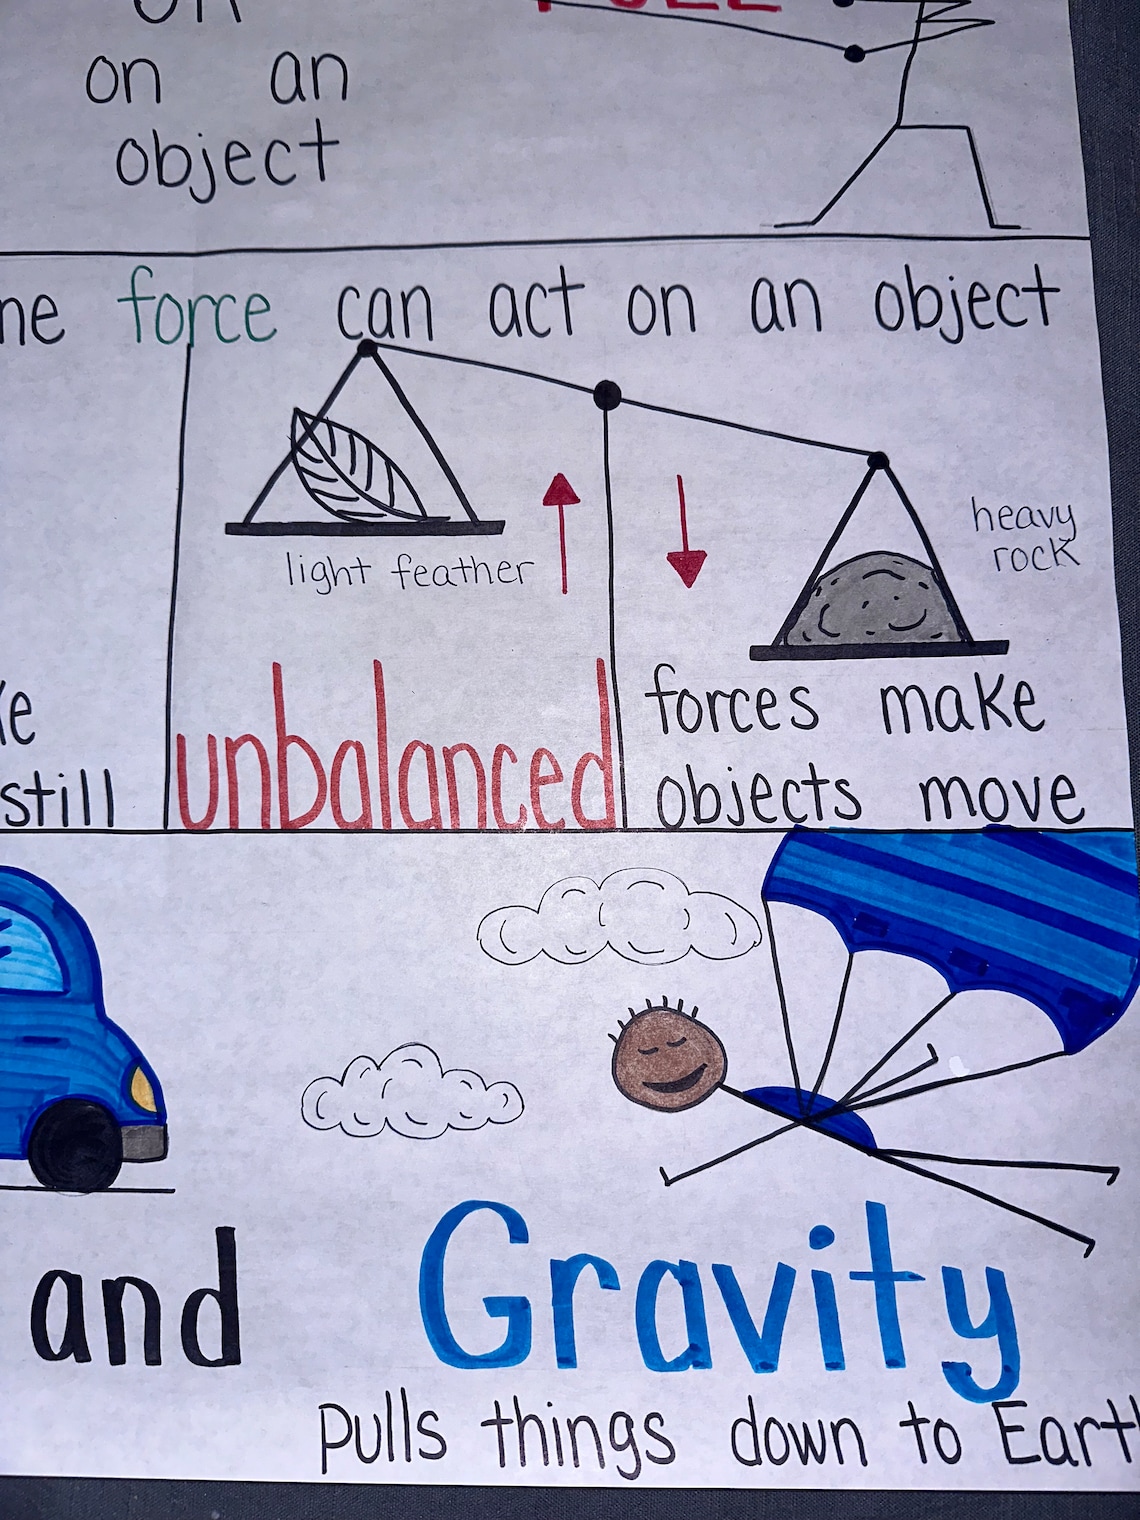 on an
object
force can act on an object
light feather
heavy
rock
still
unbalanced
forces make
objects move
and Gravity
pulls things down to Earth